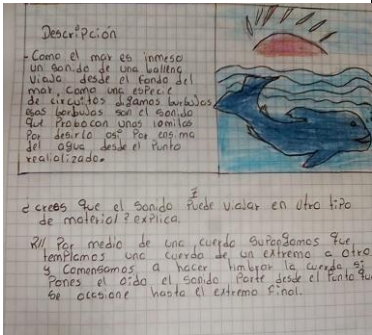 Descripción
- Como el mar es inmeso
un sonido de una ballena
viaja desde el fondo del
mar, como una especie
de circuitos digamos burbujas
esas borbujas son el sonido
que probocan unas lomitas
Por desirlo osi Por ensima
del agua desde el Punto
realializado.
¿ creés que el sonido Puede viajar en otro tipo
de material? explica.
R// Por medio de una cuerda supongamos que
templamos una cuerda de un extremo a otro
y Comensamos a hacer timbrar la cuerda, si
Pones el oido el sonido Parte desde el Punto que
se occsione hasta el extremo final.